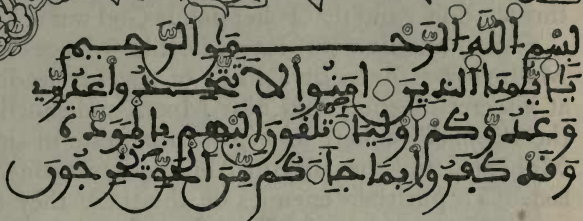 بسم الله الرحمن الرحيم
يايها الذين امنوا لا تتخذوا عدوي
وعدوكم اوليا تلقون اليهم بالمودة
وقد كفروا بما جاكم من الحق يخرجون